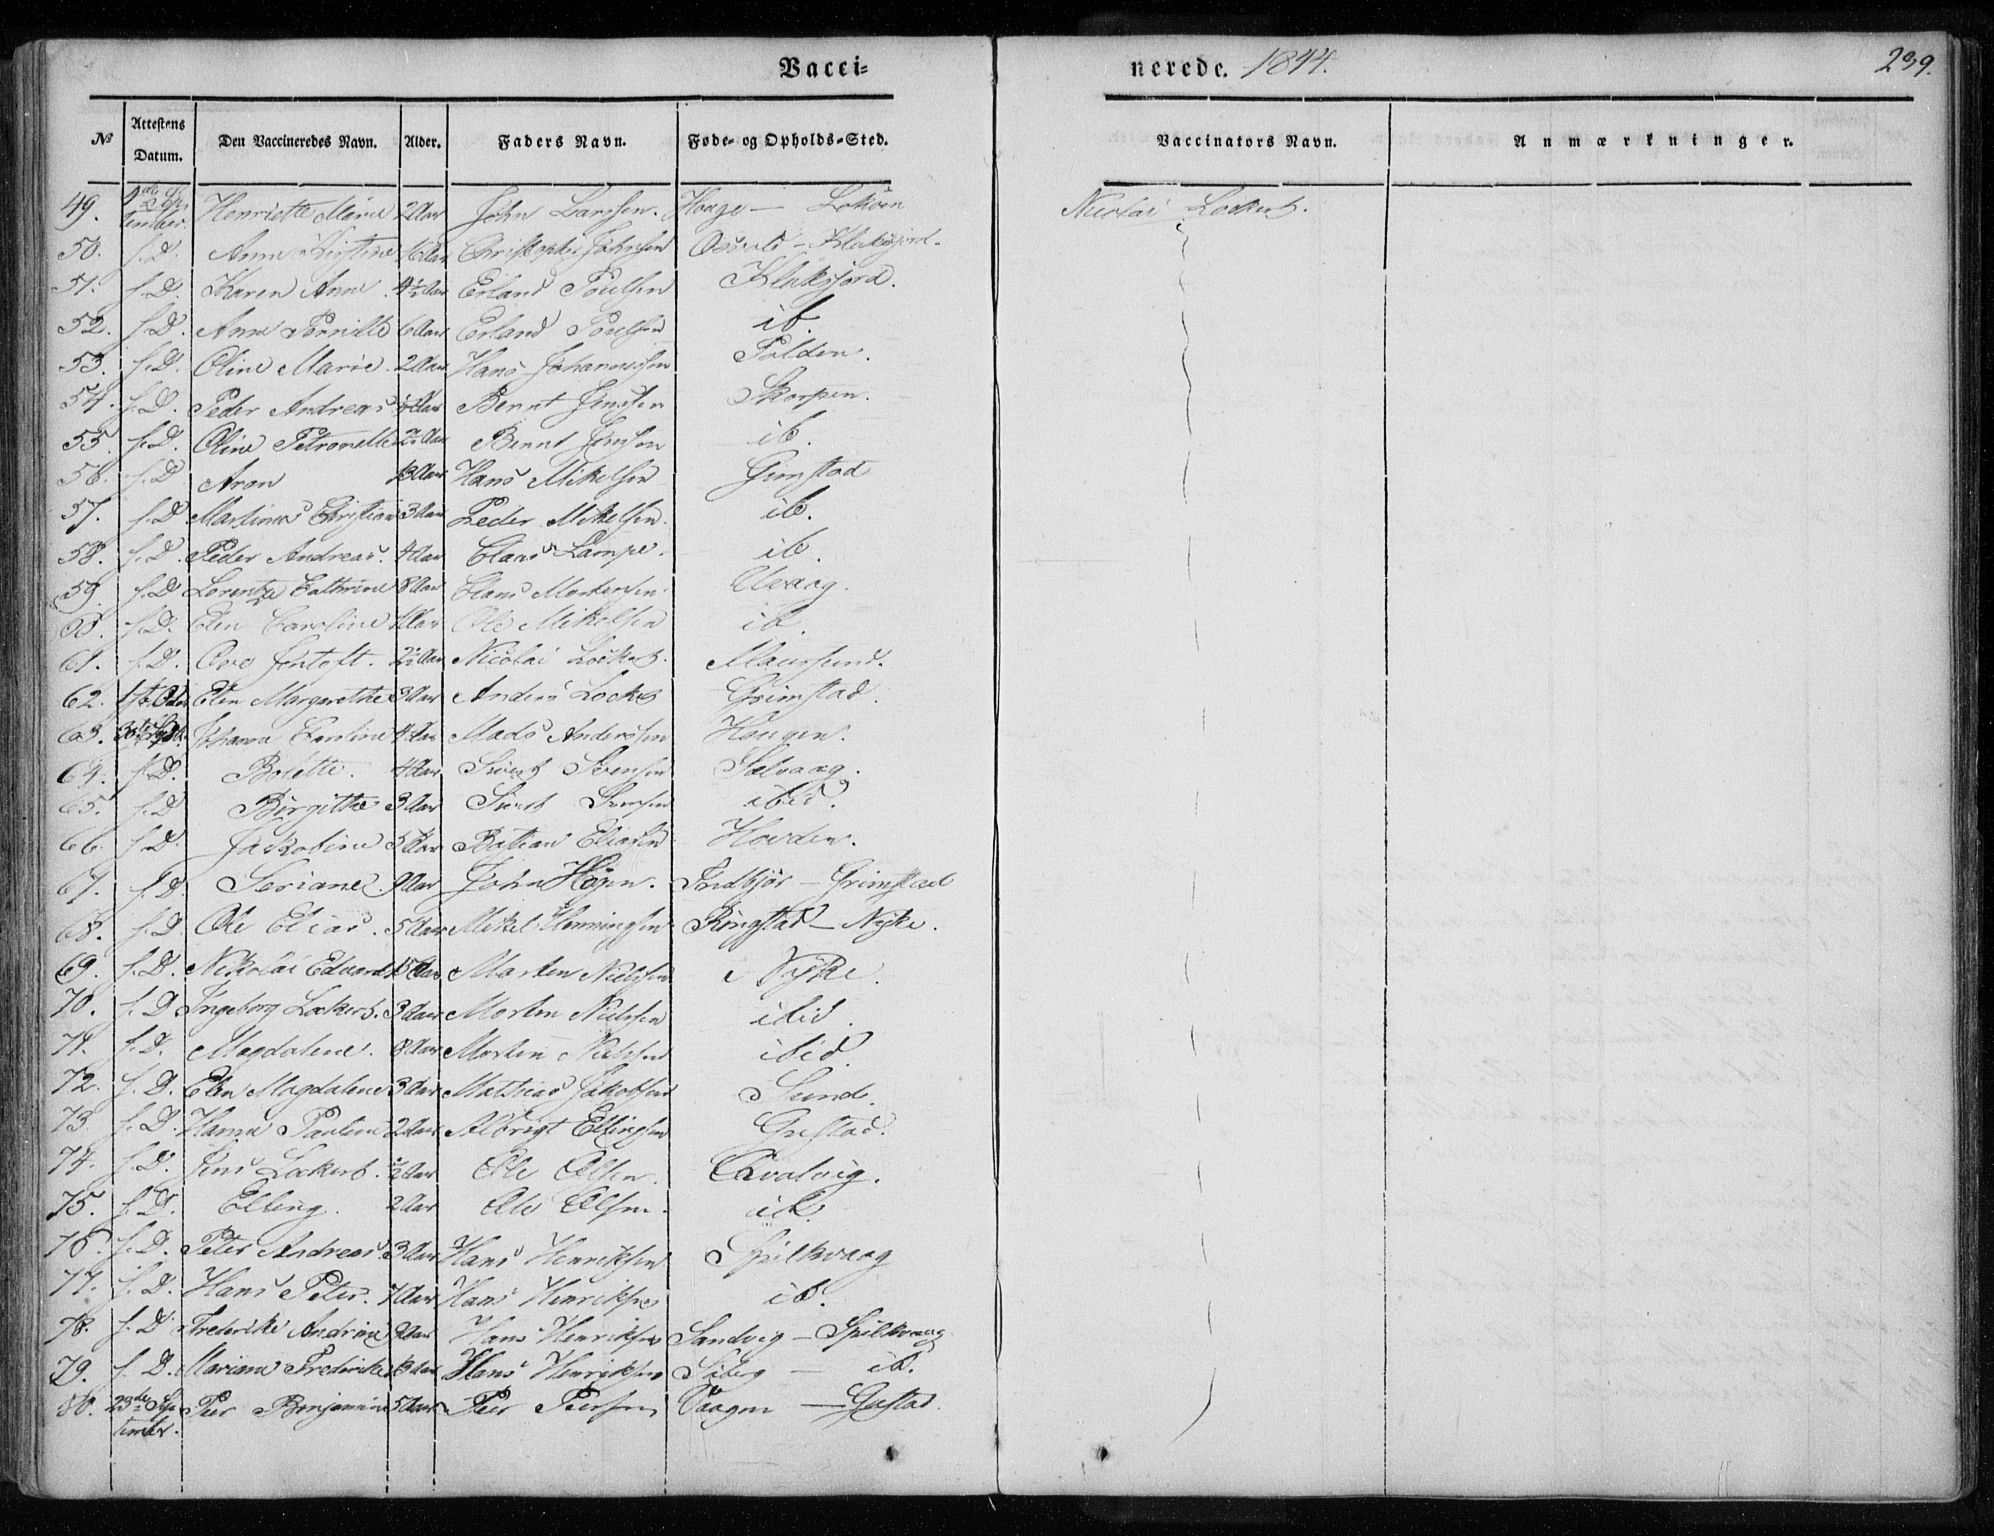 Vacci= nerede. 1844. 239.
№ Attestens Datum. Den Vaccineredes Navn. Alder. Faders Navn. Føde- og Opholds-Sted. Vaccinators Navn. Anmærkninger.
49. 2de September Henriette Marie 2 Aar John Larssen. Houge — Nicolai Lockert.
50. f. D. Anne Kistine 16 Aar Christopher Johnsen — Klaksjord.
51. f. D. Karen Anne 4½ Aar Erland Poulsen Klaksjord.
52. f. D. Anne Pernille 6 Aar Erland Poulsen ib.
53. f. D. Oline Marie 2 Aar Hans Johannessen Polden.
54. f. D. Peder Andreas Aar Bernt Jensen Skorpen.
55. f. D. Oline Petronelle 2½ Aar Bernt Jensen ib.
56. f. D. Aron 13 Aar Hans Mikelsen Grimstad
57. f. D. Martinus Christian 3 Aar Peder Mikelsen. ib.
58. f. D. Peder Andreas. 4 Aar Claus Lampe. ib.
59. f. D. Lorentze Cathrine 8 Aar Hans Mortensen. Alvaag.
60. f. D. Elen Caroline Aar Ole Mikelsen ib.
61. f. D. Ove Jentoft. 2½ Aar Nicolai Lockert. Maursund.
62. 1ste Elen Margarethe 3 Aar Anders Lockert Grimstad.
63. Johanna Caroline 4 Aar Mads Andersen Haugen.
64. f. D. Bolette. 4 Aar Sivert Svensen Selvaag.
65. f. D. Birgithe 3 Aar Sivert Svensen ibid.
66. f. D. Jakobine 5 Aar Batian Eliasen Hovden.
67. f. D. Seriane. 9 Aar John Høyen. Indbjør — Grimstad
68. f. D. Ole Elias. 5 Aar Mikel Henningsen Ringstad — Nyke.
69. f. D. Nikolai Edvard 15 Aar Morten Nielsen Nyke.
70. f. D. Ingeborg Lockert. 3 Aar Morten Nielsen ibid.
71. f. D. Magdalene. 8 Aar Morten Nielsen ibid
72. f. D. Elen Magdalene 3 Aar Mathias Jakobsen Sund.
73. f. D. Hanna Pauline 2 Aar Albrigt Ellingsen Gustad.
74. f. D. Jens Lockert. ½ Aar Ole Olsen. Qvalvig.
75. f. D. Elling. 2 Aar Ole Olsen. ib.
76. f. D. Peter Andreas 3 Aar Hans Henriksen Spilkvaag
77. f. D. Hans Peter. 7 Aar Hans Henriksen ib.
78. f. D. Frederike Andrine 9 Aar Hans Henriksen Sandvig — Spilkvaag
79. f. D. Mariane Frederike 13 Aar Hans Henriksen Siberg — ib.
80. 23de September Peer Benjamin 5 Aar Peer Peersen Vaagen — Gustad.